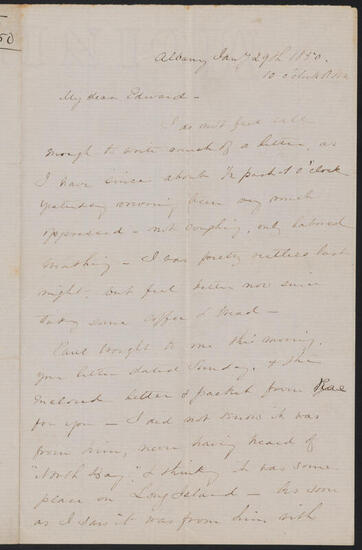 50
Albany Jany 29th 1850.
10 o'clock A.M.
My dear Edward -
I do not feel well
enough to write much of a letter, as
I have since about ½ past 1 o'clock
yesterday morning been very much
oppressed - not coughing, only labored
breathing - I was pretty restless last
night, but feel better now since
taking some coffee & bread -
Paul brought to me this morning,
your letter dated Sunday, & the
enclosed letter & packet from Rae
for you - I did not know it was
from him, never having heard of
"North Bay" & thinking it was some
place on Long Island - As soon
as I saw it was from him, with